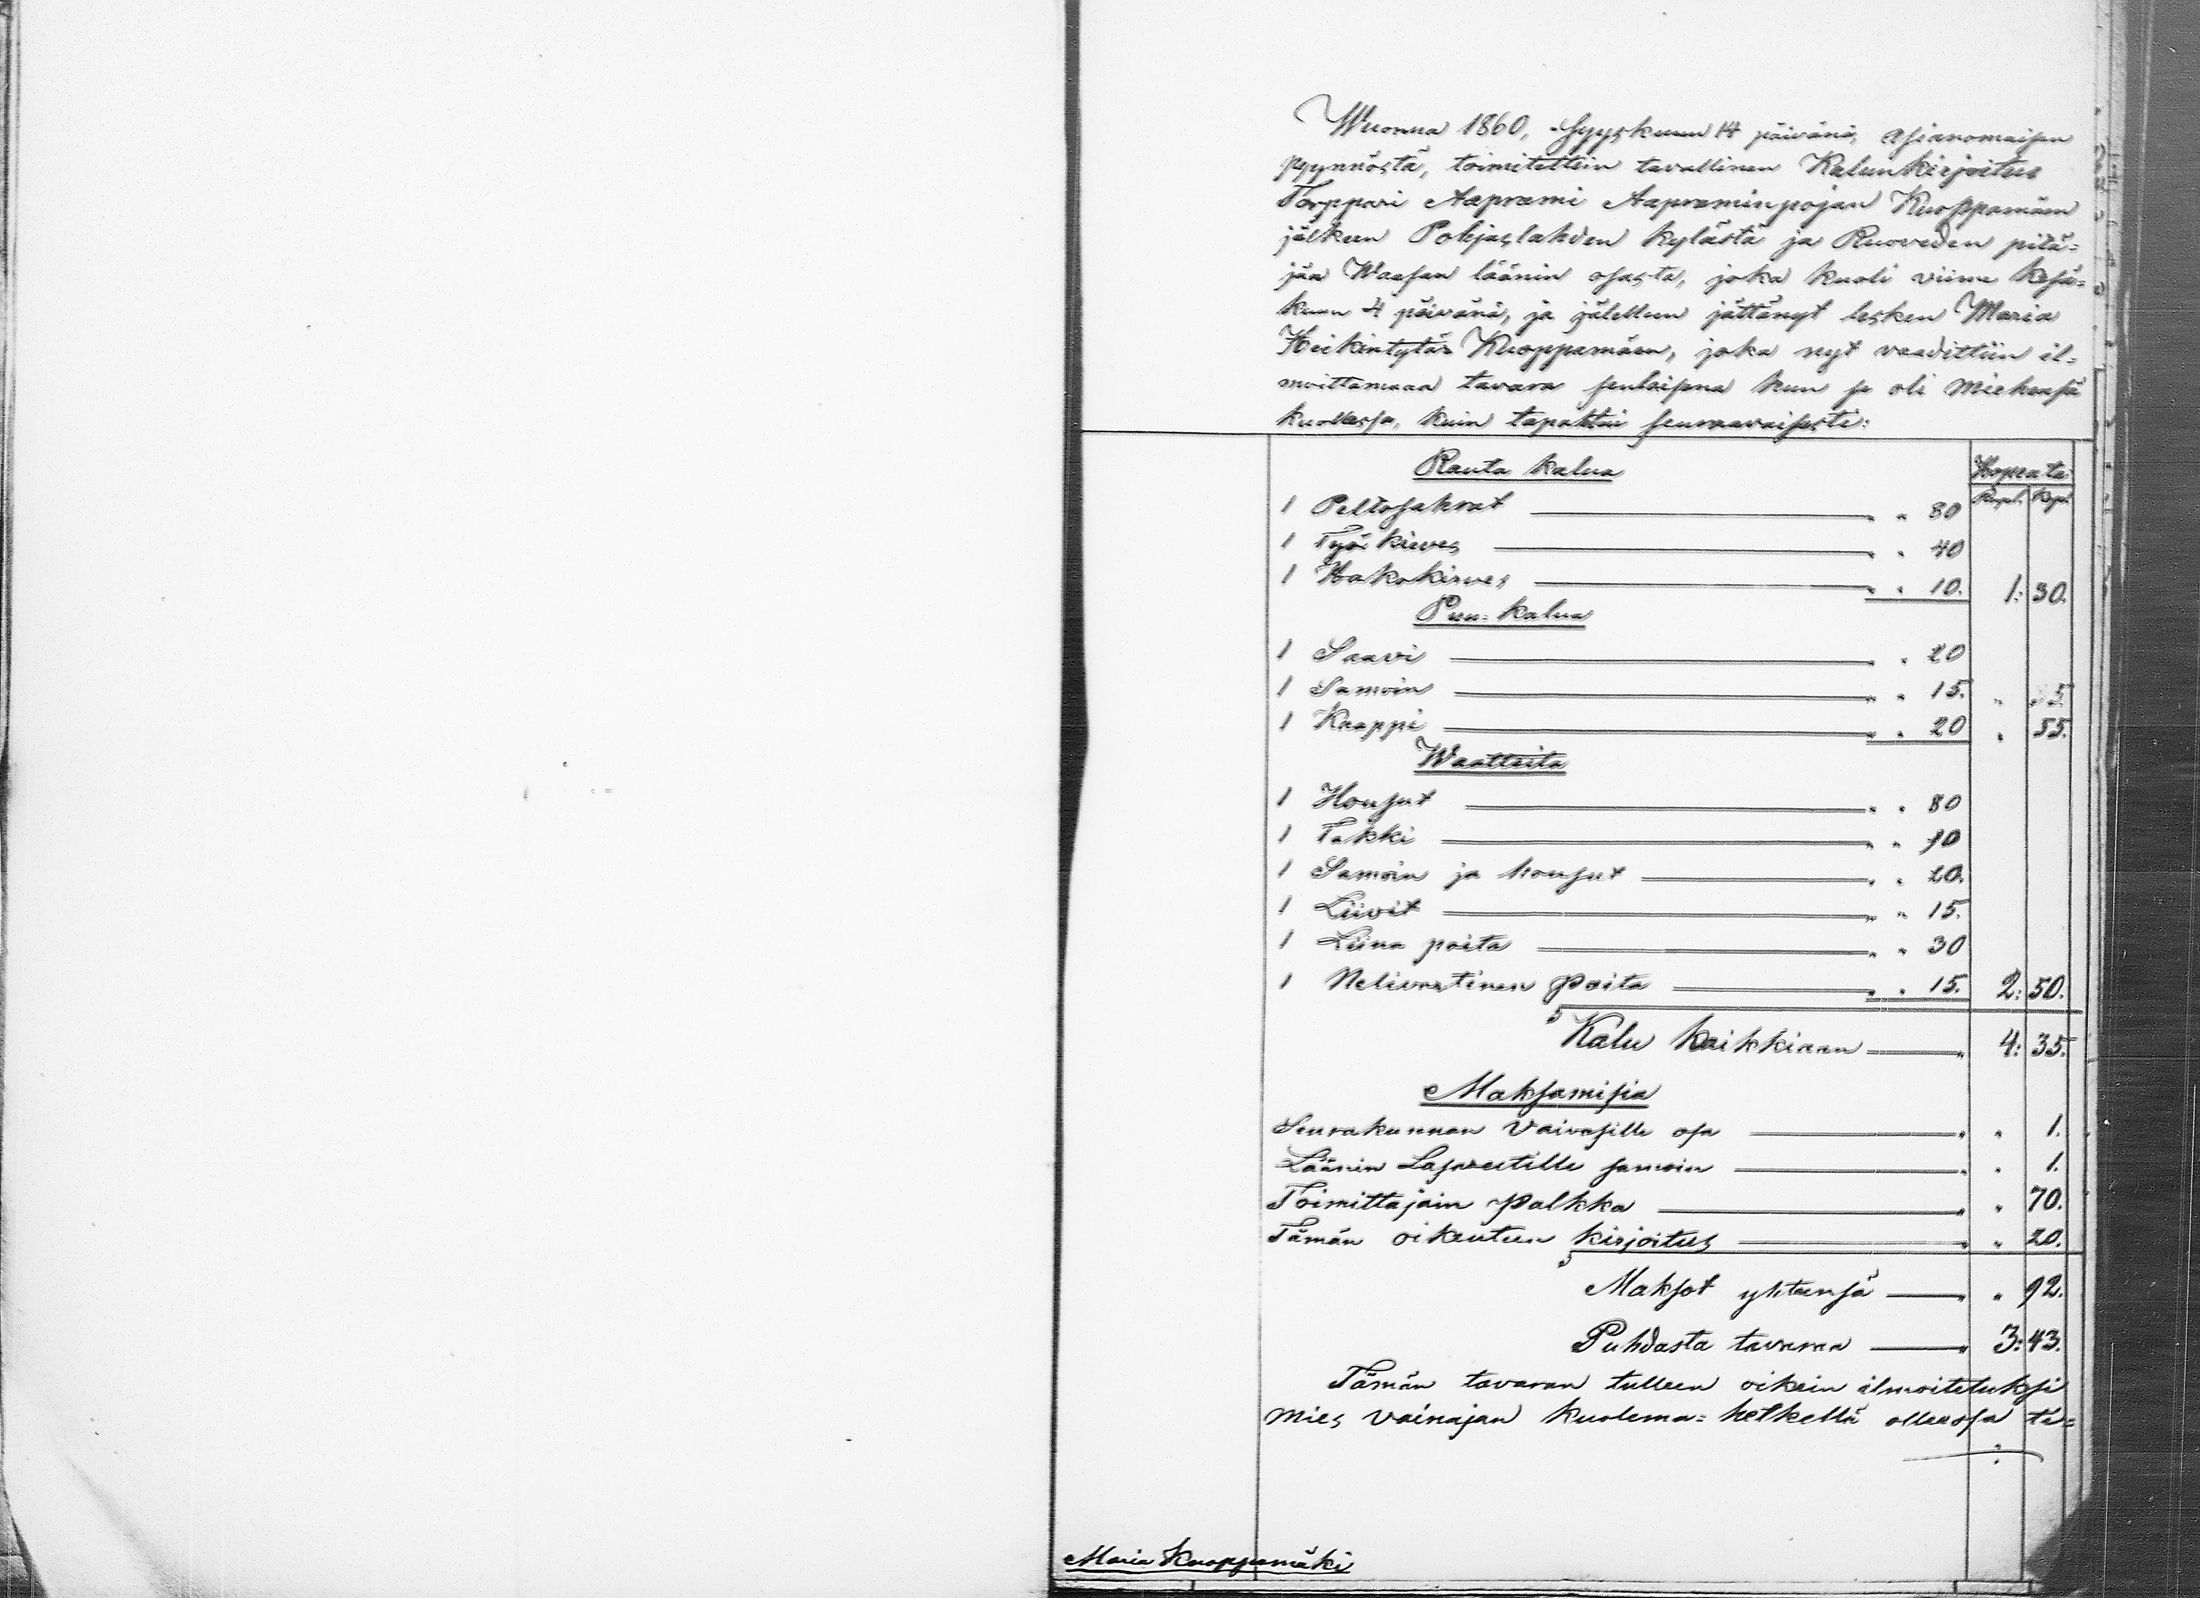 Wuonna 1860, Syyskuun 14 päivänä, Asianomaisen
pyynnöstä, toimitettiin tavallinen Kalunkirjoitus
Torppari Aaprami Aapraminpojan Kuoppamäen
jälkeen Pohjaslahden Kylästä ja Ruoveden pitä=
jää Waasan läänin osasta, joka kuoli viime Kesä=
kuun 4 päivänä, ja jälellen jättänyt lesken Maria
Heikintytär Kuoppamäen, joka nyt vaadittiin il=
moittamaan tavara senlaisna kun se oli miehensä
kuollessa, kuin tapahtui seuraavaisesti:
Rauta kalua Hopeata
Rupl. Kop.
1 Peltosahrat " " 80
1 Työ kirves " " 40
1 Hakokirves " " 10. 1: 30.
Puu=kalua
1 Saavi " " 20
1 Samoin " " 15.
1 Kaappi " " 20 " 55.
Waatteita
1 Housut " " 80
1 Takki " " 90
1 Samoin ja housut " " 20.
1 Liivit " " 15.
1 Liina paita " " 30
1 Nelivartinen paita " " 15. 2: 50.
Kalu kaikkiaan " 4: 35.
Maksamisia
Seurakunnan Vaivasille osa " " 1.
Läänin Lasareetille samoin " " 1.
Toimittajain palkka " " 70.
Tämän oikeuteen kirjoitus " " 20.
Maksot yhteensä " " 92.
Puhdasta tavaraa " 3: 43.
Tämän tavaran tulleen oikein ilmoitetuksi
mies vainajan kuolema=hetkellä ollessa ti=
Maria Kuoppamäki